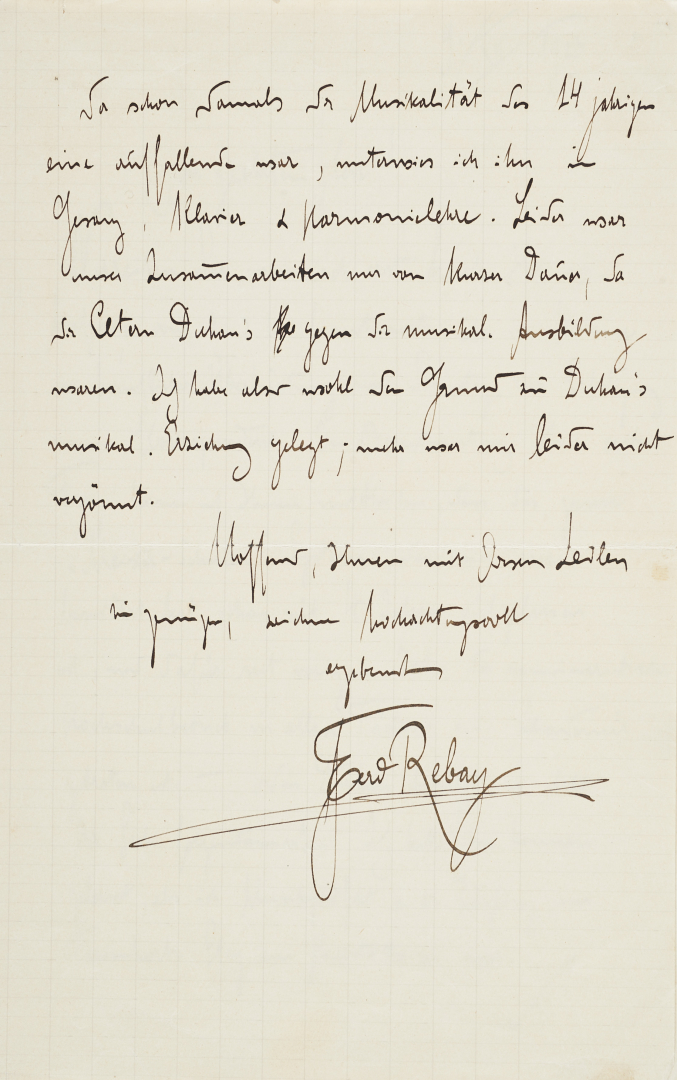 Da schon damals die Musikalität des 14 jährigen
eine auffallende war, unterwies ich ihn in
Gesang, Klavier & Harmonielehre. Leider war
unser Zusam̅enarbeiten nur von kurzer Dauer, da
die Eltern Duhan's gegen die musikal. Ausbildung
waren. Ich habe also wohl den Grund zu Duhan's
musikal. Erziehung gelegt; mehr war mir leider nicht
vergönnt.
Hoffend, Ihnen mit diesen Zeilen
zu genügen, zeichne hochachtungsvoll
ergebenst
Ferd Rebay